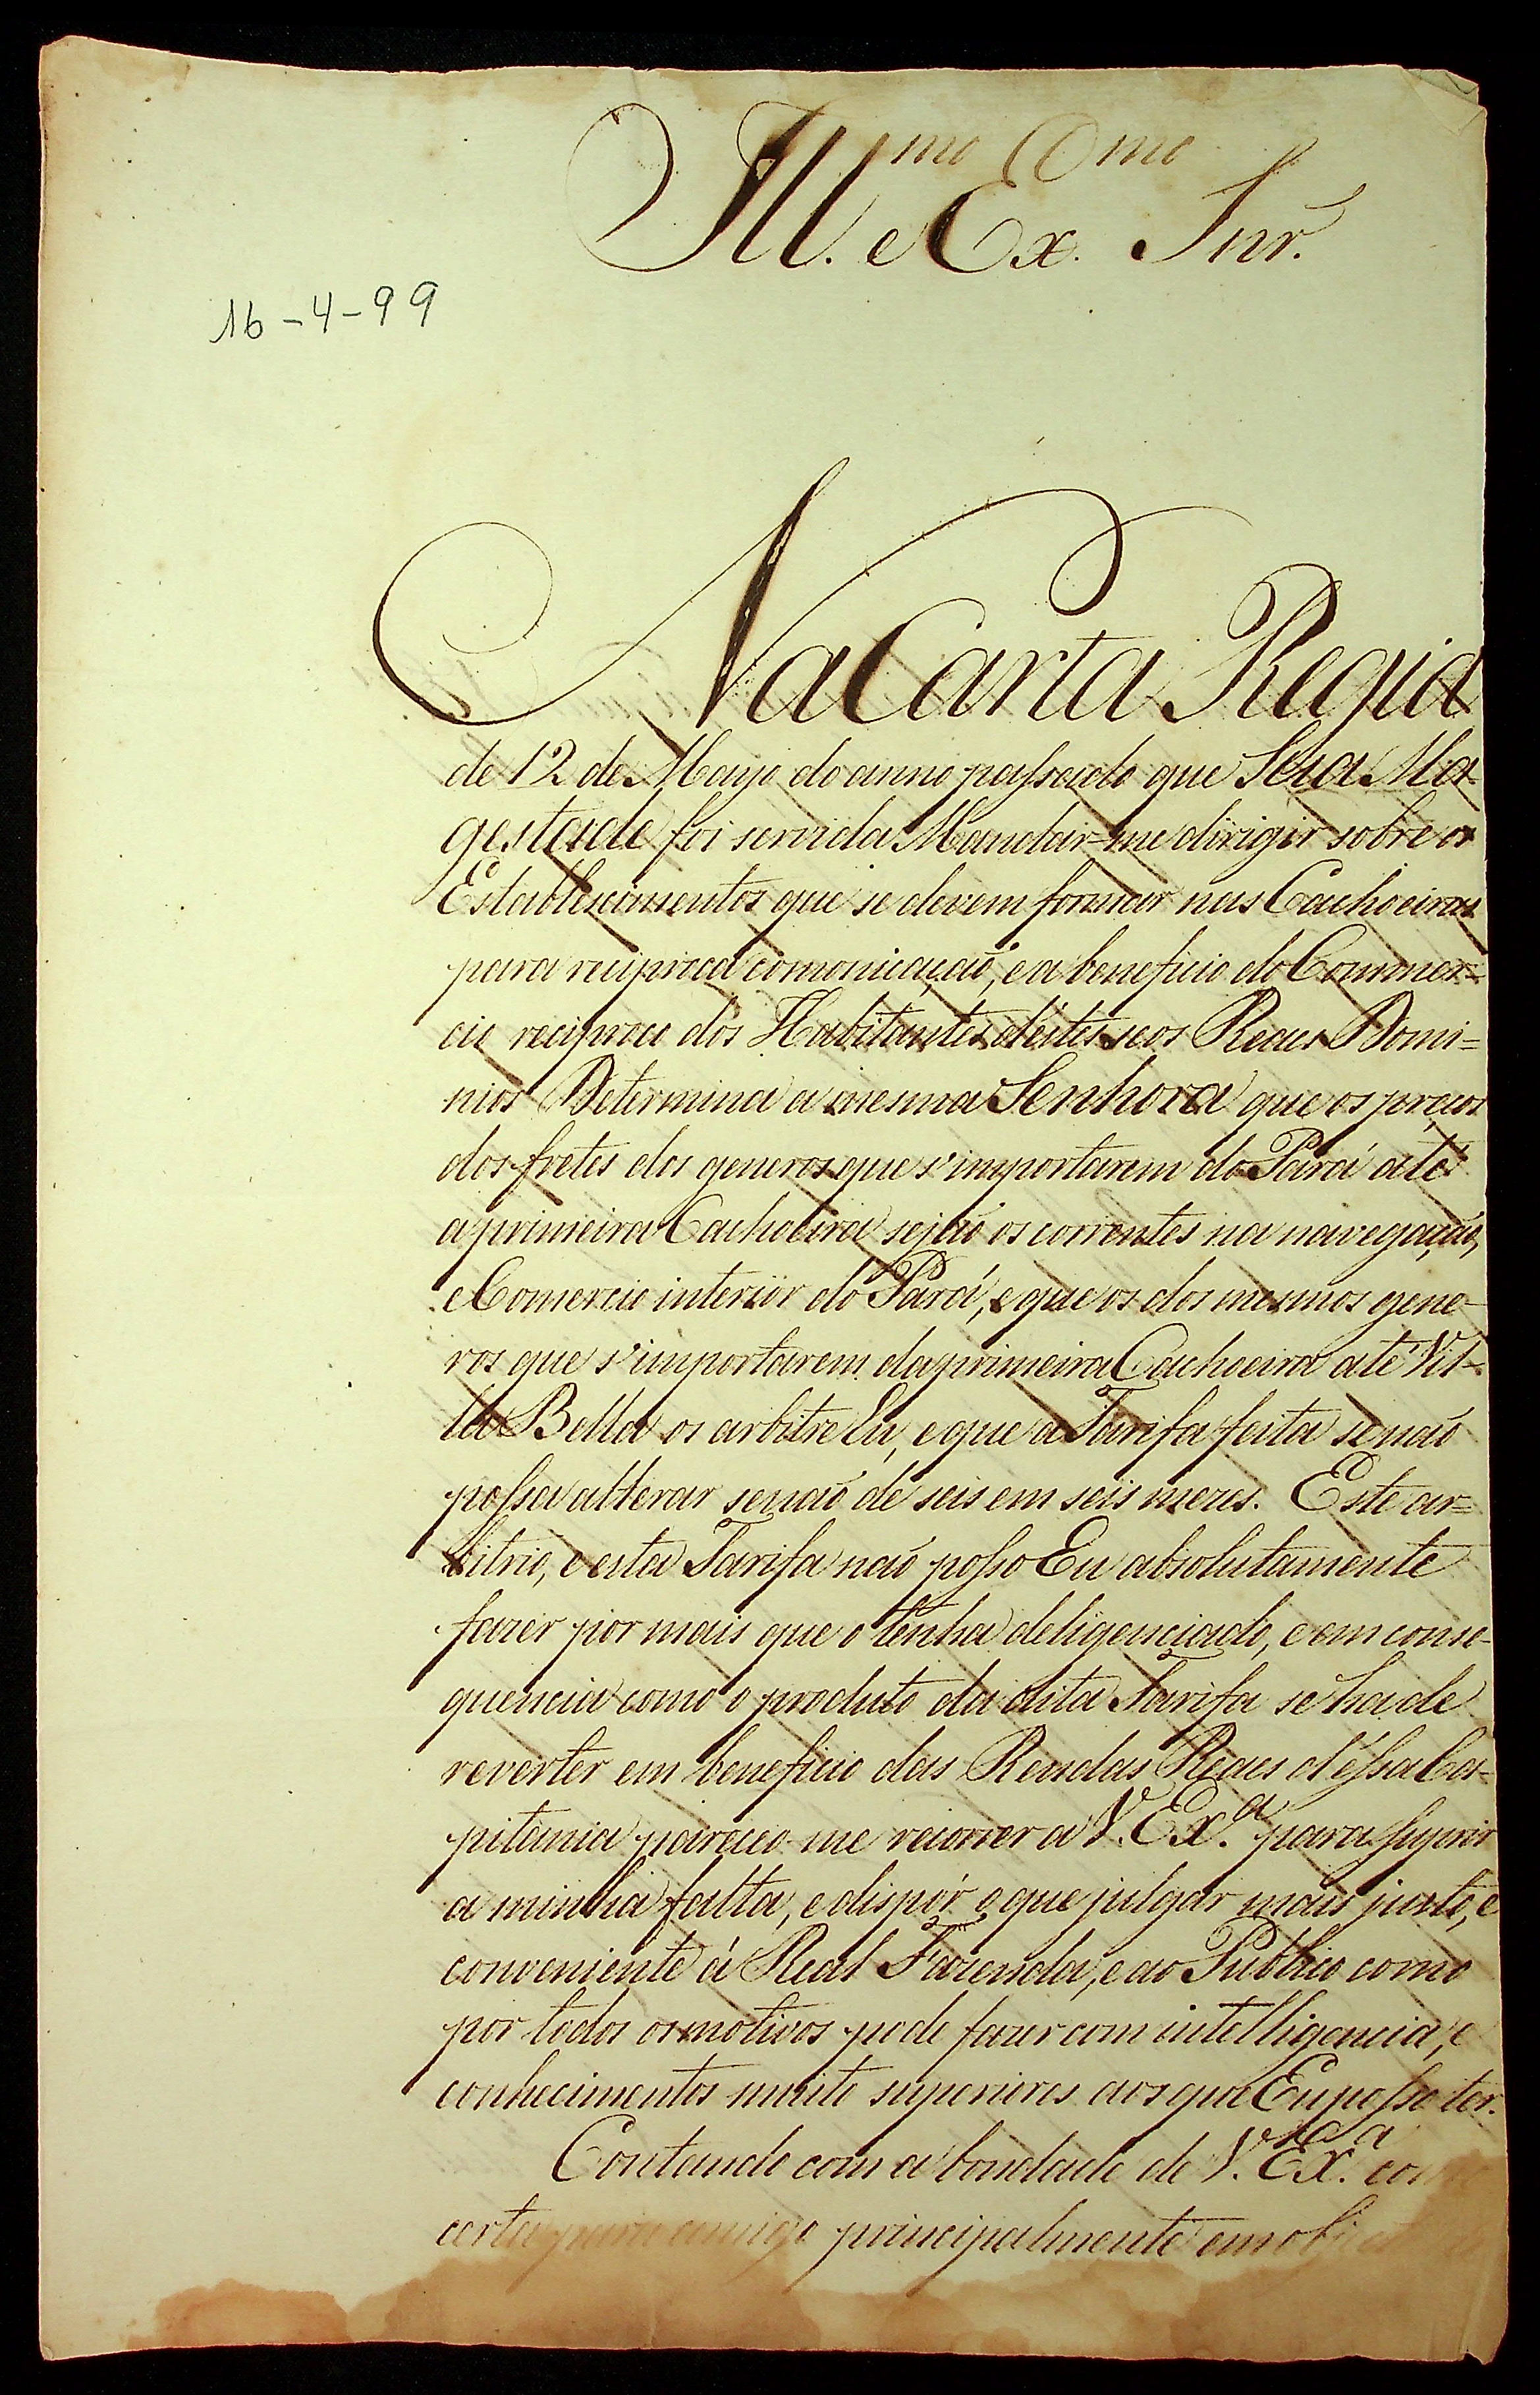 Ill.mo e Ex.mo Snr.
16-4-99
Na Carta Regia
de 12 de Mayo do anno passado que Sua Ma-
gestade foi servida Mandar-me dirigir sobre os
Establescimentos que se devem formar nas Cachoeiras
para reciproca comonicação, e a beneficio do Commer=
cio reciproco dos Habitantes d'estes seos Reaes Domi=
nios Determina a mesma Senhora que os preços
dos fretes dos generos que s'importarem do Pará até
a primeira Cachoeira sejaõ os correntes na navegação,
e Comercio interior do Pará, e que os dos mesmos gene-
ros que s'importarem da primeira Cachoeira até Vil-
la Bella os arbitre Eu, e que a Tarifa feita se naõ
possa alterar senaõ de seis em seis mezes. Este ar=
bitrio, e esta Tarifa naõ posso Eu absolutamente
fazer por mais que o tenha deligenciado, e em conse-
quencia como o produto da dita Tarifa se ha de
reverter em beneficio das Rendas Reaes d'essa Ca-
pitania pareceo-me recorrer a V. Ex.a para suprir
a minha falta, e dispór o que julgar mais justo, e
conveniente á Real Fazenda, e ao Publico como
por todos os motivos pode fazer com intelligencia, e
conhecimentos muito superiores aos que Eu posso ter.
Contando com a bondade de V. Ex.a como
certa para comigo principalmente em